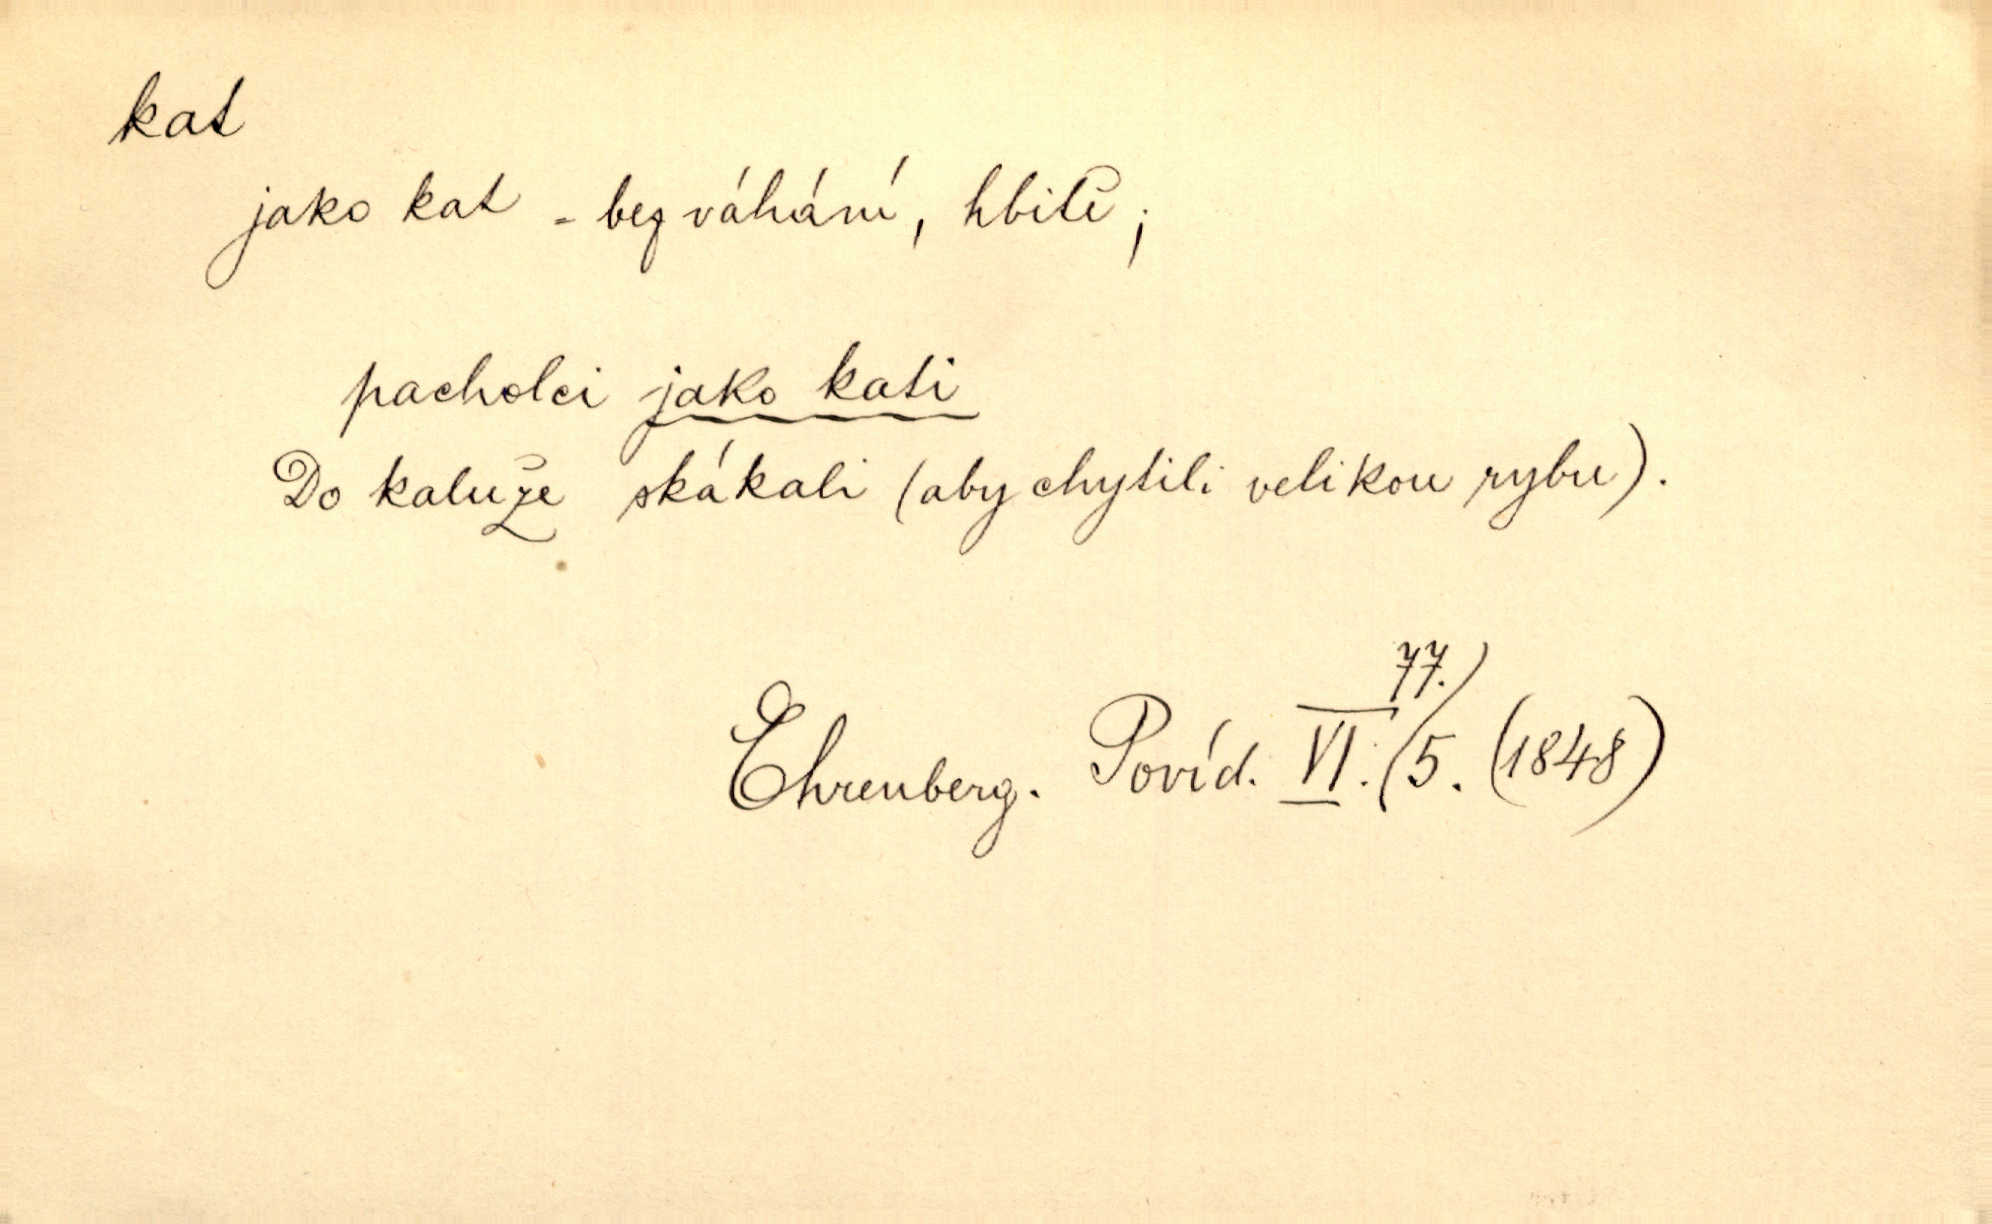 kat
jako kat - bez váhání, hbitě;
pacholci jako kati
Do kaluže skákali (aby chytili velikou rybu).
77.
Ehrenberg. Povíd. VI./5. (1848)